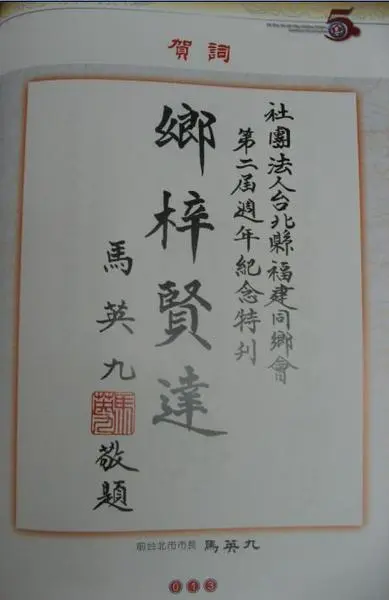 賀詞
社團法人台北縣福建同鄉會
第二屆週年紀念特刊
鄉梓賢達
馬英九
敬題
前台北市市長 馬英九
013